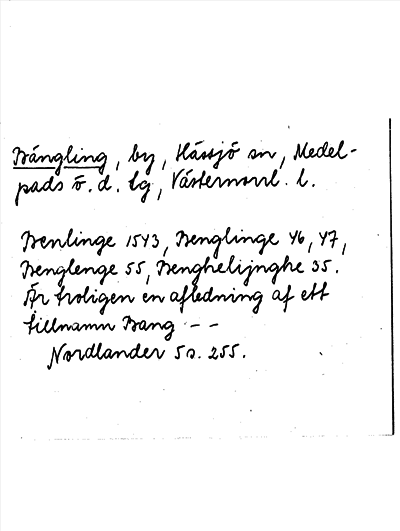 Bängling, by, Hässjö sn, Medel-
pads ö. d. lg, Västernorrl. l.
Benlinge 1543, Benglinge 46, 47,
Benglenge 55, Benghelijnghe 35.
Är troligen en afledning af ett
tillnamn Bang - -
Nordlander 5 s. 255.